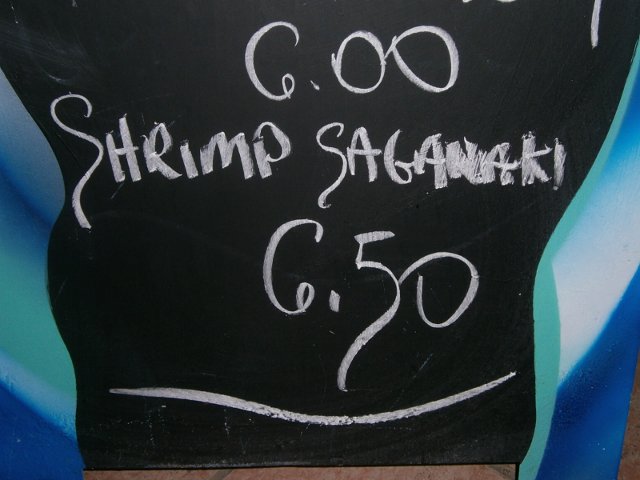 6.00
SHRIMP SAGANAKI
6.50